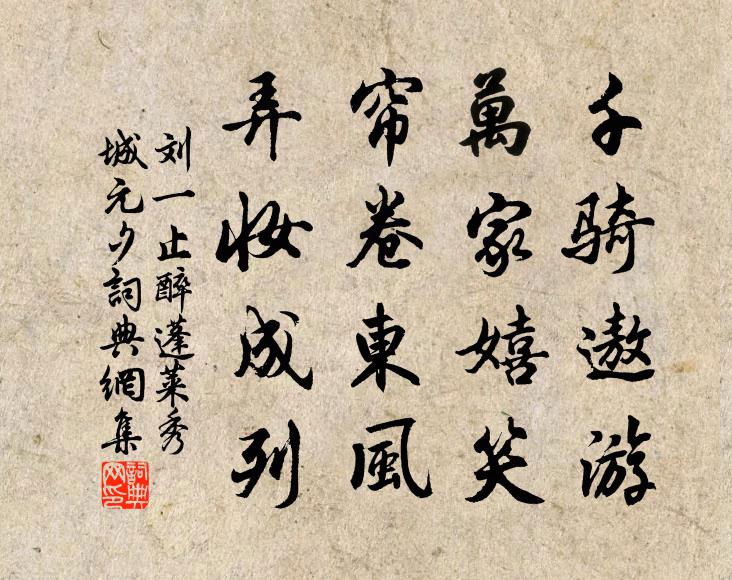 千骑遨游
萬家嬉笑
帘卷東風
弄妆成列
刘一止醉蓬莱秀
城元夕詞典網集
詞典
网印